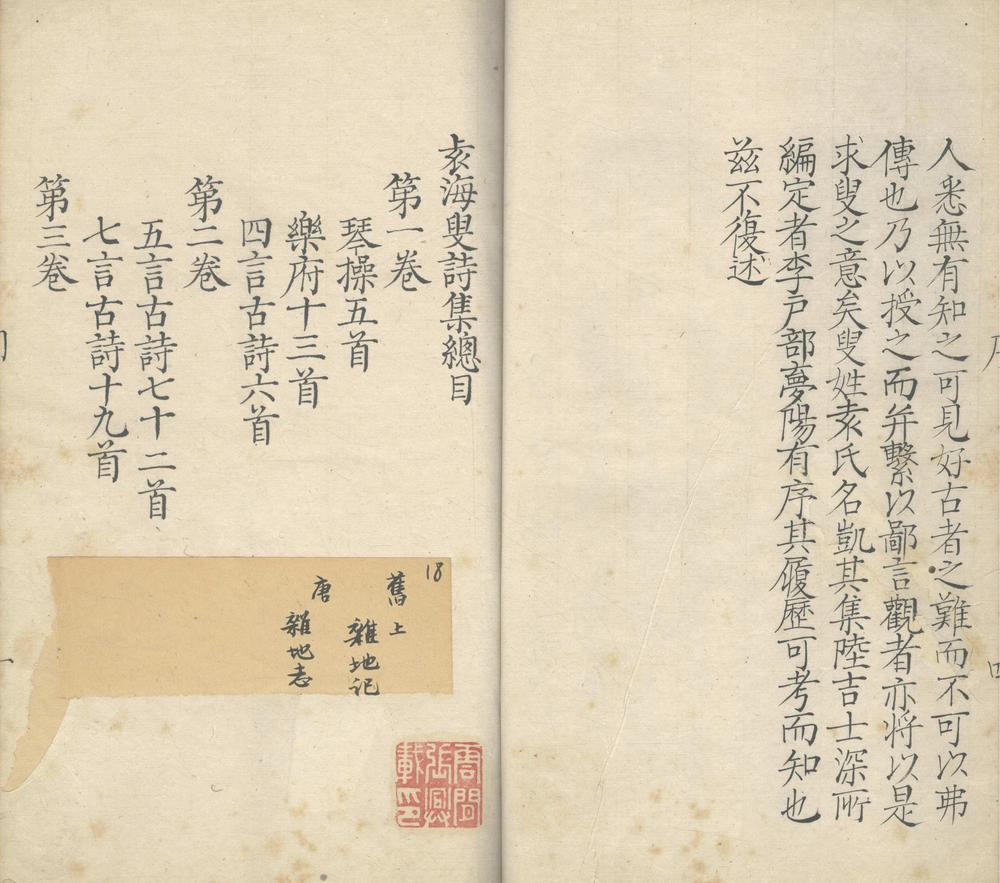 人悉無有知之可見好古者之難而不可以弗
傳也乃以授之而并繫以鄙言觀者亦将以是
求叟之意矣叟姓袁氏名凱其集陸吉士深所
編定者李戶部夢陽有序其履歷可考而知也
兹不復述
袁海叟詩集總目
第一卷
琴操五首
樂府十三首
四言古詩六首
第二卷
五言古詩七十二首
七言古詩十九首
第三卷
18
舊上
雜地記
唐
雜地志